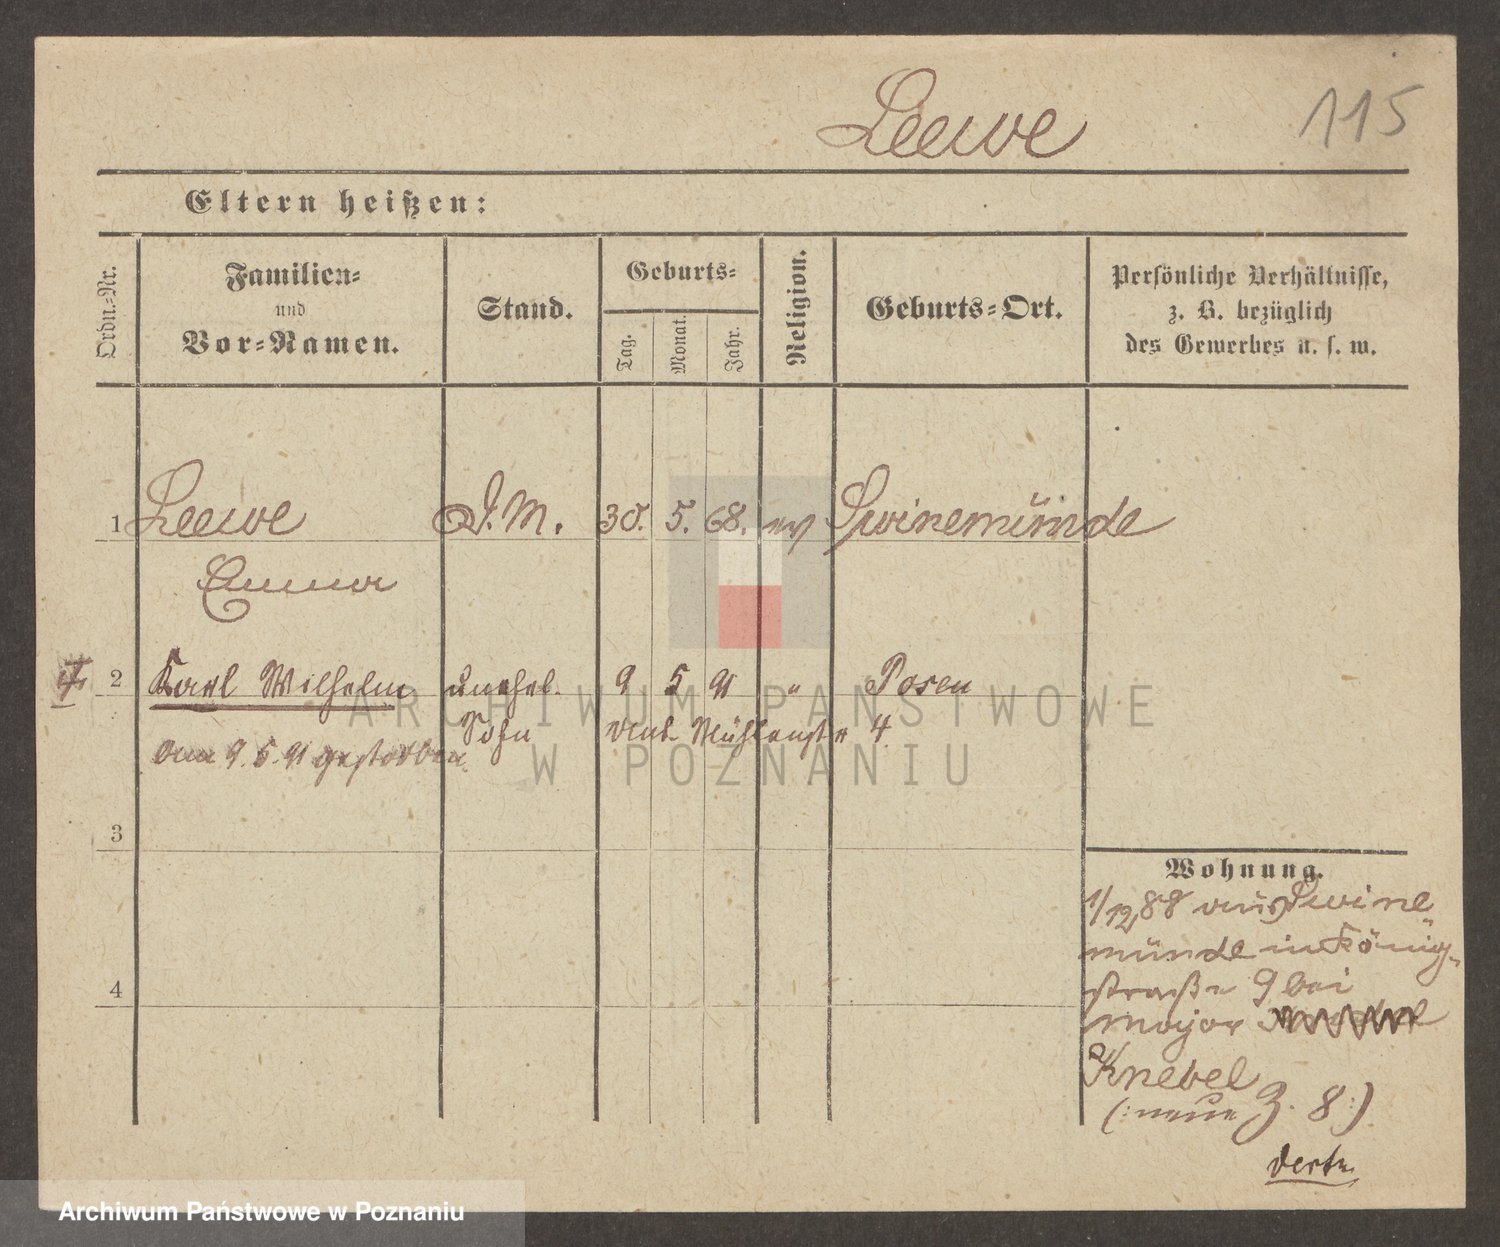 Leewe 115
Eltern heißen:
Ordn.-Nr.
Familien-
und
Vor-Namen.
Stand.
Geburts-
Tag.
Monat.
Jahr.
Religion.
Geburts-Ort.
Persönliche Verhältnisse,
z. B. bezüglich
des Gewerbes u. s. w.
1 Leewe D. M. 30. 5. 68. ev Swinemünde
Emma
2 Karl Wilhelm unehel. 9 5 91 " Posen
Sohn Mühlenstr 4
am 9. 5. 91 gestorben
3
4
Wohnung.
1/12 88 aus Swine
münde in König-
straße 9 bei
Major
Knebel
(: neue Z. 8 :)
ARCHIWUM PAŃSTWOWE
W POZNANIU
Archiwum Państwowe w Poznaniu